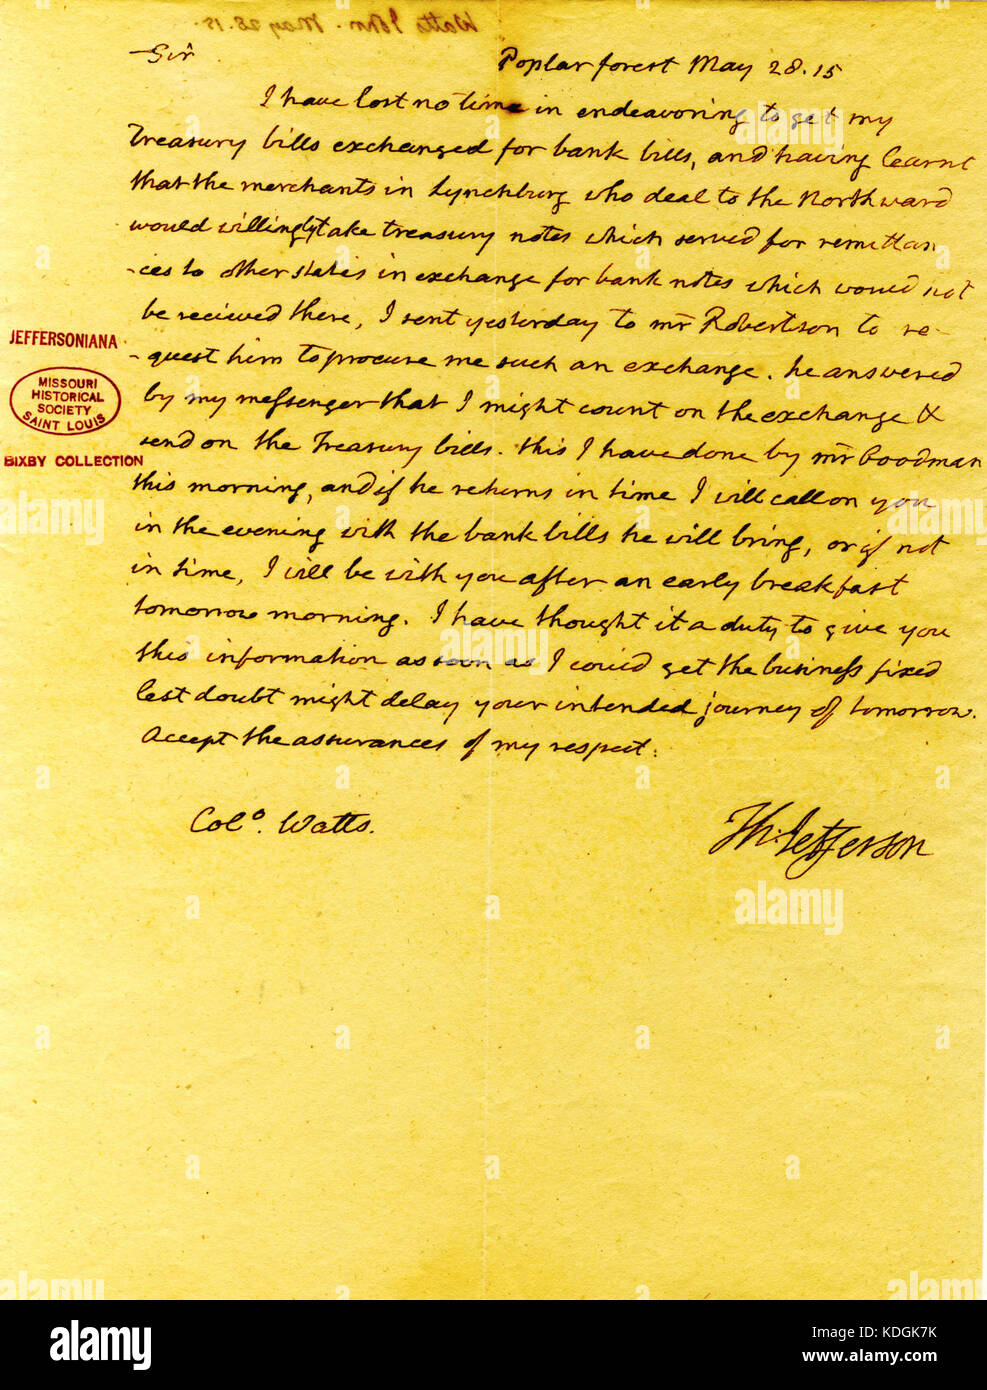 Watts John. May 28. 15.
Sir
Poplar forest May 28. 15
I have lost no time in endeavoring to get my
Treasury bills exchanged for bank bills, and having learnt
that the merchants in Lynchburg who deal to the Northward
would willingly take treasury notes which served for remittan
-ces to other states in exchange for bank notes which would not
be recieved there, I sent yesterday to mr Robertson to re-
-quest him to procure me such an exchange. he answered
by my messenger that I might count on the exchange &
send on the Treasury bills. this I have done by mr Goodman
this morning, and if he returns in time I will call on you
in the evening with the bank bills he will bring, or if not
in time, I will be with you after an early breakfast
tomorrow morning. I have thought it a duty to give you
this information as soon as I could get the business fixed
lest doubt might delay your intended journey of tomorrow.
Accept the assurances of my respect.
Colo. Watts.
Th: Jefferson
JEFFERSONIANA
MISSOURI
HISTORICAL
SOCIETY
SAINT LOUIS
BIXBY COLLECTION
alamy
Image ID: KDGK7K
www.alamy.com